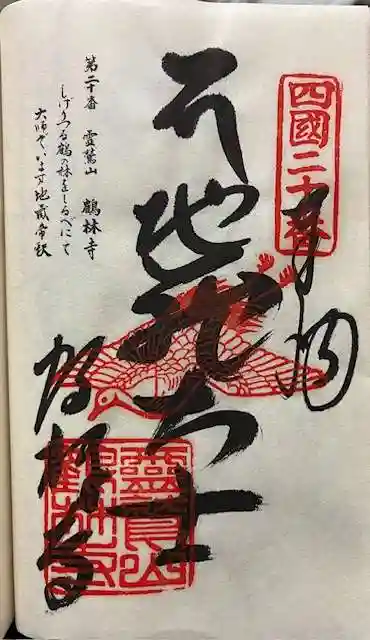 四國二十番
奉納
地蔵大士
第二十番 霊鷲山 鶴林寺
しげりつる鶴の林をしるべにて
大師ぞいます地蔵帝釈
鶴林寺
靈鷲山
鶴林寺